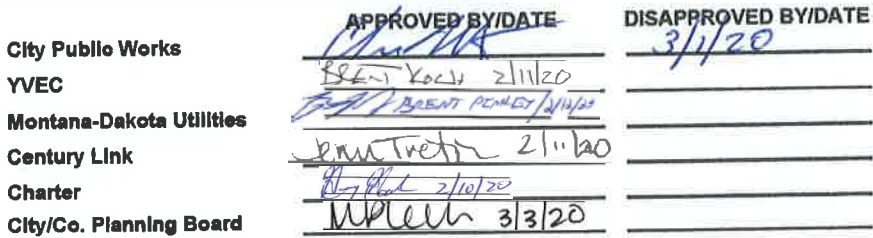 APPROVED BY/DATE DISAPPROVED BY/DATE
City Public Works 3/1/20
YVEC BRENT KOCH 2/11/20
Montana-Dakota Utilities BRENT 2/12/20
Century Link 2/11/20
Charter 2/10/20
City/Co. Planning Board 3/3/20